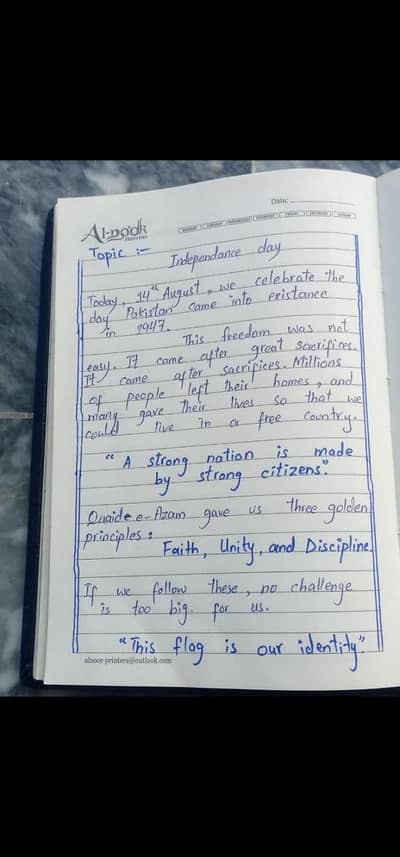 Date:
Al-noor
PRINTERS
MONDAY TUESDAY WEDNESDAY THURSDAY FRIDAY SATURDAY SUNDAY
Topic :-
Independance day
Today, 14th August, we celebrate the
day Pakistan came into existance
in 1947.
This freedom was not
easy. It came after great sacrifices.
It came after sacrifices. Millions
of people left their homes, and
many gave their lives so that we
could live in a free country.
"A strong nation is made
by strong citizens."
Quaid-e-Azam gave us three golden
principles:
Faith, Unity, and Discipline.
If we follow these, no challenge
is too big. for us.
"This flag is our identity."
alnoor-printers@outlook.com